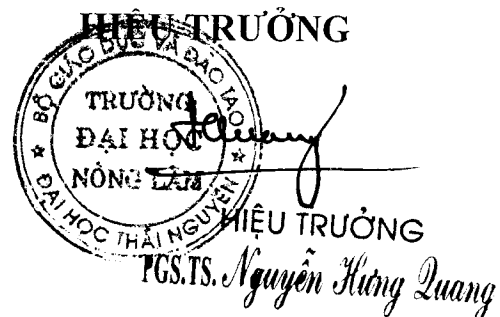 HIỆU TRƯỞNG
BỘ GIÁO DỤC VÀ ĐÀO TẠO
TRƯỜNG
ĐẠI HỌC
NÔNG LÂM
ĐẠI HỌC THÁI NGUYÊN
HIỆU TRƯỞNG
PGS.TS. Nguyễn Hưng Quang